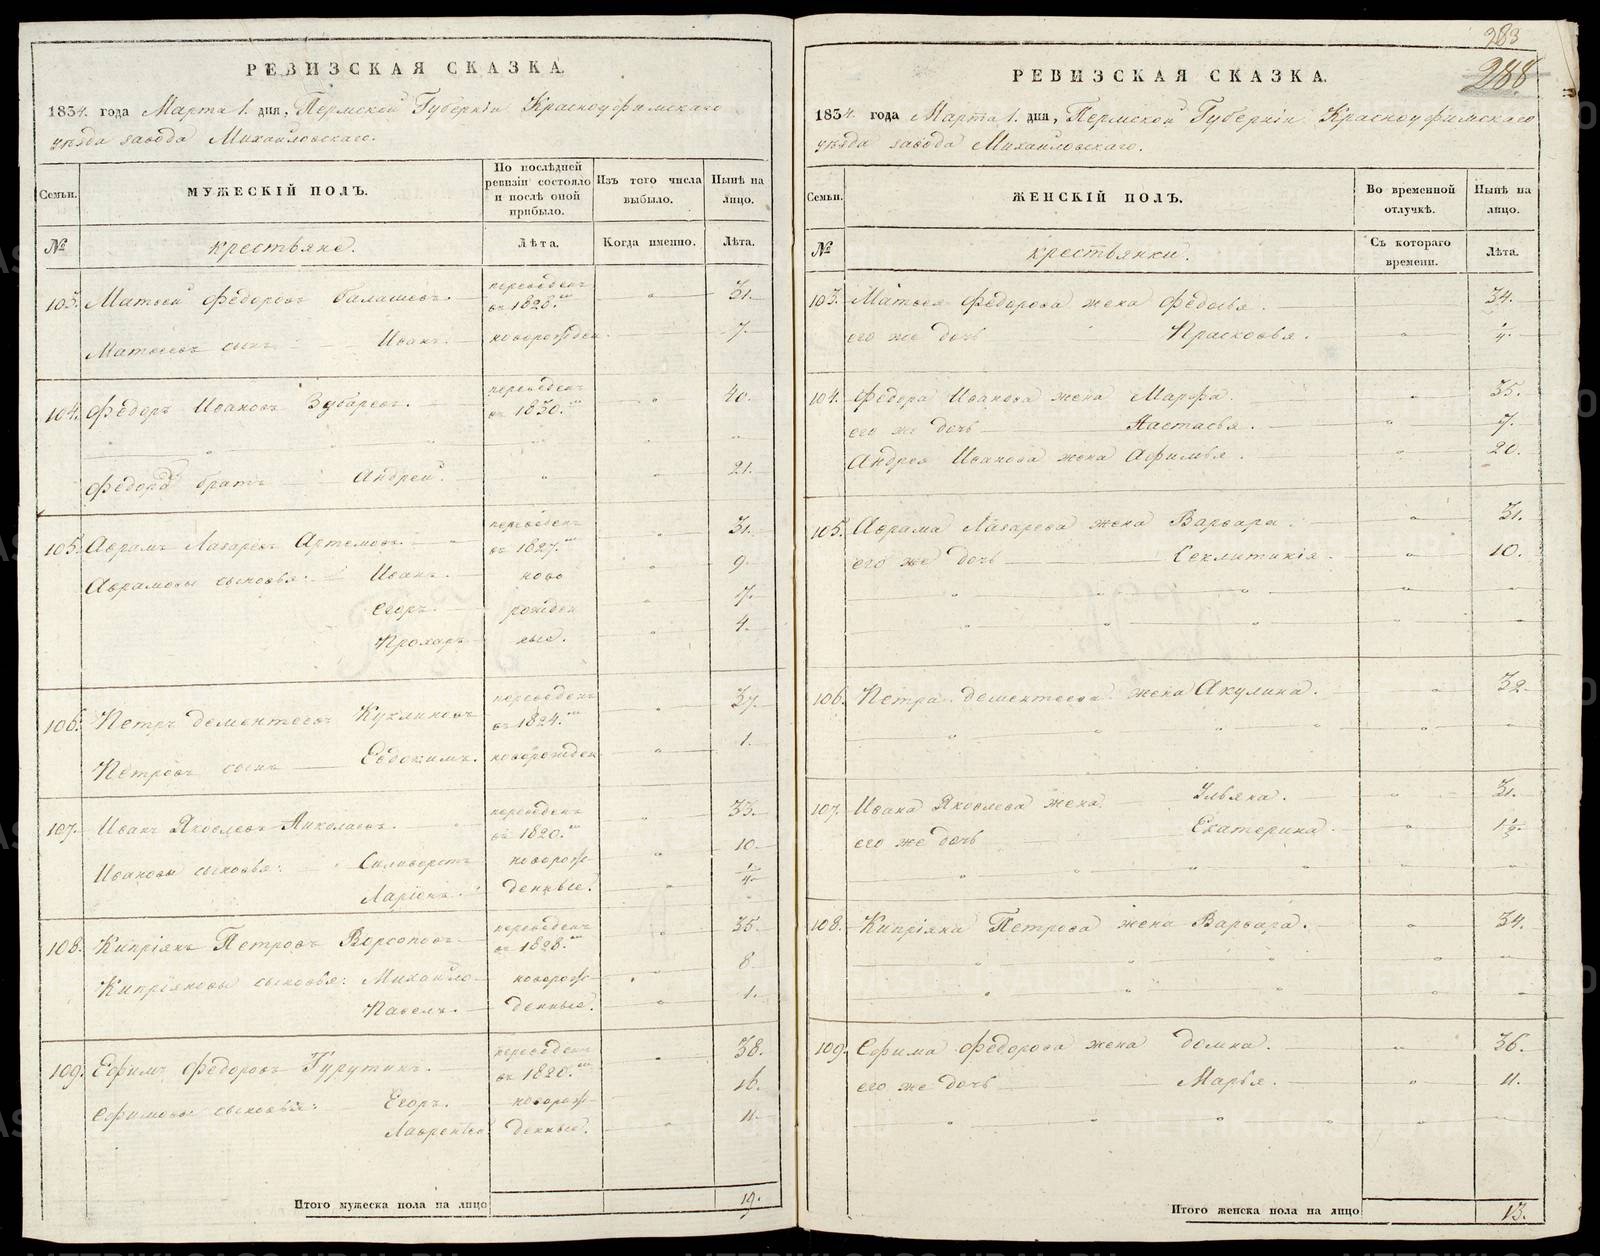 РЕВИЗСКАЯ СКАЗКА.
1834. года Марта 1. дня, Пермской Губерніи Красноуфимскаго
уѣзда завода Михайловскаго.
Семьи.
МУЖЕСКІЙ ПОЛЪ.
По послѣдней
ревизіи состояло
и послѣ оной
прибыло.
Изъ того числа
выбыло.
Нынѣ на
лицо.
№
крестьяне.
Лѣта.
Когда именно.
Лѣта.
103. Матвей Федоровъ Балашевъ. переведенъ въ 1828.мъ 31.
Матвеевъ сынъ Иванъ. новорожден. 7.
104. Федоръ Ивановъ Зубаревъ. переведенъ въ 1830.мъ 40.
Федора братъ Андрей. 21.
105. Аврамъ Лазаревъ Артемовъ. переведенъ въ 1827.мъ 31.
Аврамовы сыновья: Иванъ. ново 9.
Егоръ. рожден 7.
Прохоръ ные. 4.
106. Петръ Дементьевъ переведенъ въ 1824.мъ 37.
Петровъ сынъ Евдокимъ. новорожден 1.
107. Иванъ Яковлевъ Николаевъ. переведенъ въ 1820.мъ 33.
Ивановы сыновья: Силиверстъ новорож- 10.
Ларіонъ. денные. 1/4
108. Кипріянъ Петровъ переведенъ въ 1828.мъ 35.
Кипріяновы сыновья: Михайло новорож- 8
Павелъ. денные. 1.
109. Ефимъ Федоровъ Гурутинъ. переведенъ въ 1820.мъ 38.
Ефимовы сыновья: Егоръ. новорож- 16.
Лаврентей денные. 11.
Итого мужеска пола на лицо 19.
283
288
РЕВИЗСКАЯ СКАЗКА.
1834. года Марта 1. дня, Пермской Губерніи Красноуфимскаго
уѣзда завода Михайловскаго.
Семьи.
ЖЕНСКІЙ ПОЛЪ.
Во временной
отлучкѣ.
Нынѣ на
лицо.
№
крестьянки.
Съ котораго
времени.
Лѣта.
103. Матвея Федорова жена Федосья. 34.
его же дочь Прасковья. 1/4.
104. Федора Иванова жена Марфа. 35.
его же дочь Настасья. 7.
Андрея Иванова жена Афимья. 20.
105. Аврама Лазарева жена Варвара. 31.
его же дочь Секлитикія. 10.
106. Петра Дементьева жена Акулина. 32.
107. Ивана Яковлева жена Ульяна. 31.
его же дочь Екатерина. 1 1/2.
108. Кипріяна Петрова жена Варвара. 34.
109. Ефима Федорова жена Домна. 36.
его же дочь Марья. 11.
Итого женска пола на лицо 13.